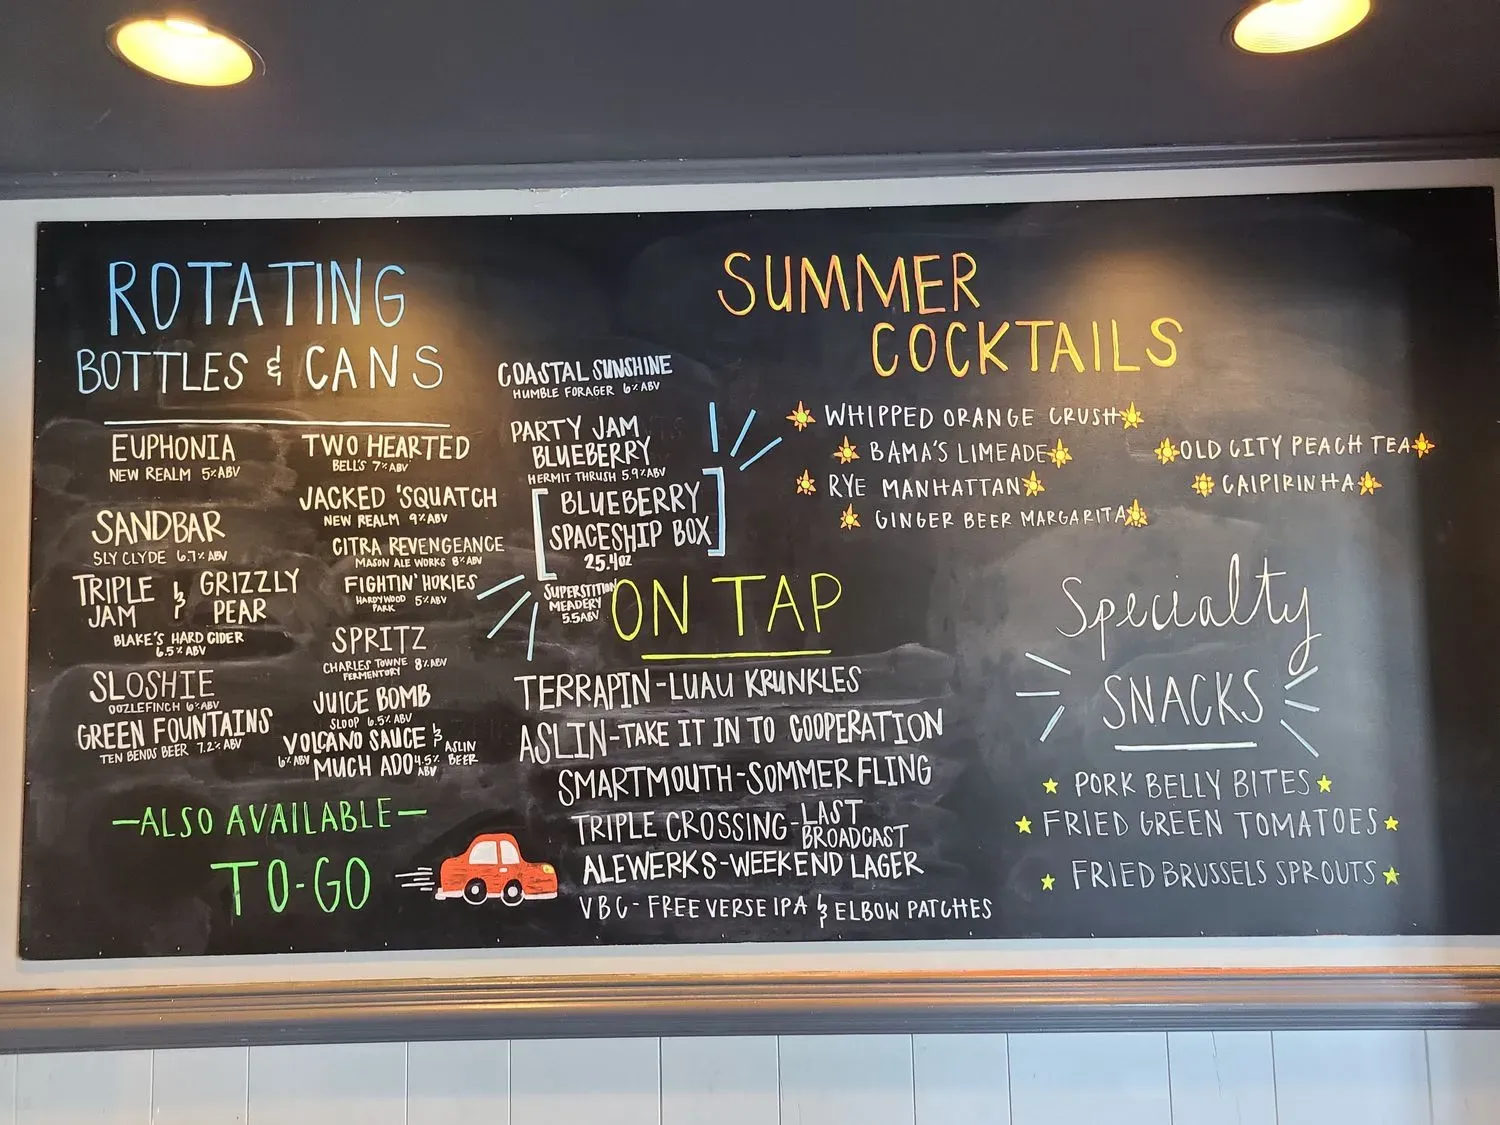 ROTATING
BOTTLES & CANS
EUPHONIA
NEW REALM 5% ABV
SANDBAR
SLY CLYDE 6.7% ABV
TRIPLE JAM & GRIZZLY PEAR
BLAKE'S HARD CIDER
6.5% ABV
SLOSHIE
OOZLEFINCH 6% ABV
GREEN FOUNTAINS
TEN BENDS BEER 7.2% ABV
TWO HEARTED
BELL'S 7% ABV
JACKED 'SQUATCH
NEW REALM 9% ABV
CITRA REVENGEANCE
MASON ALE WORKS 8% ABV
FIGHTIN' HOKIES
HARDYWOOD PARK 5% ABV
SPRITZ
CHARLES TOWNE FERMENTORY 8% ABV
JUICE BOMB
SLOOP 6.5% ABV
VOLCANO SAUCE &
6% ABV
MUCH ADO 4.5% ABV
ASLIN BEER
COASTAL SUNSHINE
HUMBLE FORAGER 6% ABV
PARTY JAM
BLUEBERRY
HERMIT THRUSH 5.9% ABV
BLUEBERRY
SPACESHIP BOX
25.4OZ
SUPERSTITION
MEADERY
5.5ABV
—ALSO AVAILABLE—
TO-GO
ON TAP
TERRAPIN-LUAU KRUNKLES
ASLIN-TAKE IT IN TO COOPERATION
SMARTMOUTH-SOMMER FLING
TRIPLE CROSSING-LAST
BROADCAST
ALEWERKS-WEEKEND LAGER
VBC-FREE VERSE IPA & ELBOW PATCHES
SUMMER
COCKTAILS
WHIPPED ORANGE CRUSH
BAMA'S LIMEADE
RYE MANHATTAN
GINGER BEER MARGARITA
OLD CITY PEACH TEA
CAIPIRINHA
Specialty
SNACKS
PORK BELLY BITES
FRIED GREEN TOMATOES
FRIED BRUSSELS SPROUTS